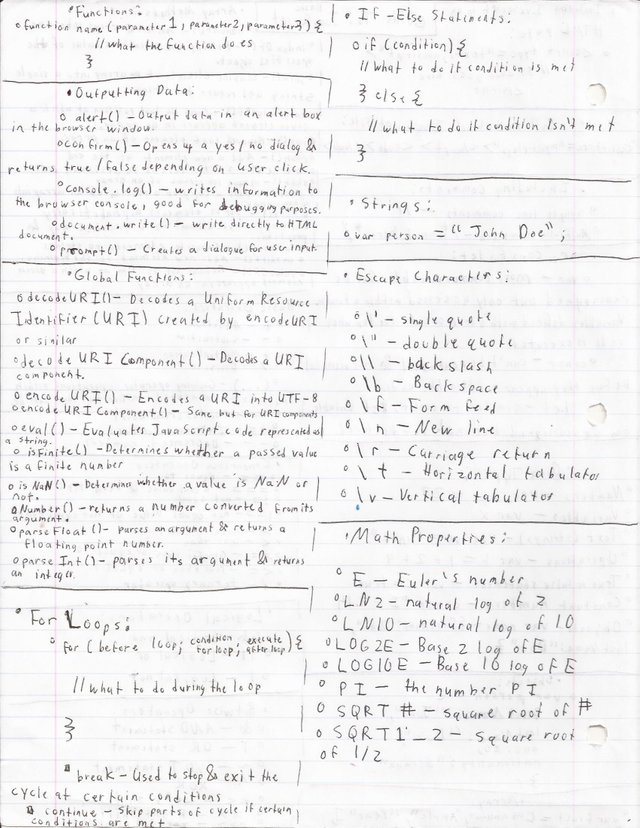 • Functions:
o function name(parameter1, parameter2, parameter3) {
// what the function does
}
• Outputting Data:
o alert() – Output data in an alert box
in the browser window.
o confirm() – Opens up a yes/no dialog &
returns true/false depending on user click.
o console.log() – writes information to
the browser console, good for debugging purposes.
o document.write() – write directly to HTML
document.
o prompt() – Creates a dialogue for user input.
• Global Functions:
o decodeURI() – Decodes a Uniform Resource
Identifier (URI) created by encodeURI
or similar
o decode URI Component() – Decodes a URI
component.
o encode URI() – Encodes a URI into UTF-8
o encode URI Component() – Same but for URI components
o eval() – Evaluates JavaScript code represented as
a string.
o isFinite() – Determines whether a passed value
is a finite number
o is NaN() – Determines whether a value is NaN or
not.
o Number() – returns a number converted from its
argument.
o parseFloat() – parses an argument & returns a
floating point number.
o parse Int() – parses its argument & returns
an integer.
• For Loops:
• for (before loop; condition for loop; execute after loop) {
// what to do during the loop
}
break – Used to stop & exit the
cycle at certain conditions
continue – skip parts of cycle if certain
conditions are met
• If-Else Statements:
o if (condition) {
// what to do if condition is met
} else {
// what to do if condition isn't met
}
• Strings:
o var person = "John Doe";
• Escape Characters:
o \' – single quote
o \" – double quote
o \\ – backslash
o \b – Backspace
o \f – Form feed
o \n – New line
o \r – Carriage return
o \t – Horizontal tabulator
o \v – Vertical tabulator
• Math Properties:
o E – Euler's number
o LN2 – natural log of 2
o LN10 – natural log of 10
o LOG2E – Base 2 log of E
o LOG10E – Base 10 log of E
o PI – the number PI
o SQRT # – square root of #
o SQRT1_2 – square root
of 1/2